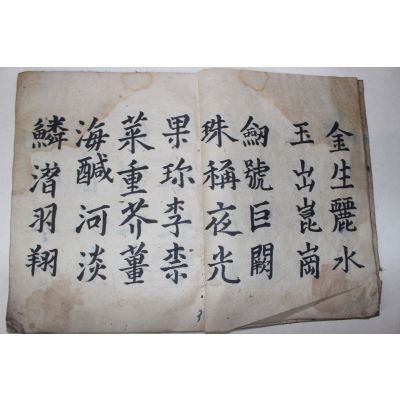 金生麗水
玉出崑崗
劒號巨闕
珠稱夜光
果珎李柰
菜重芥薑
海鹹河淡
鱗潛羽翔